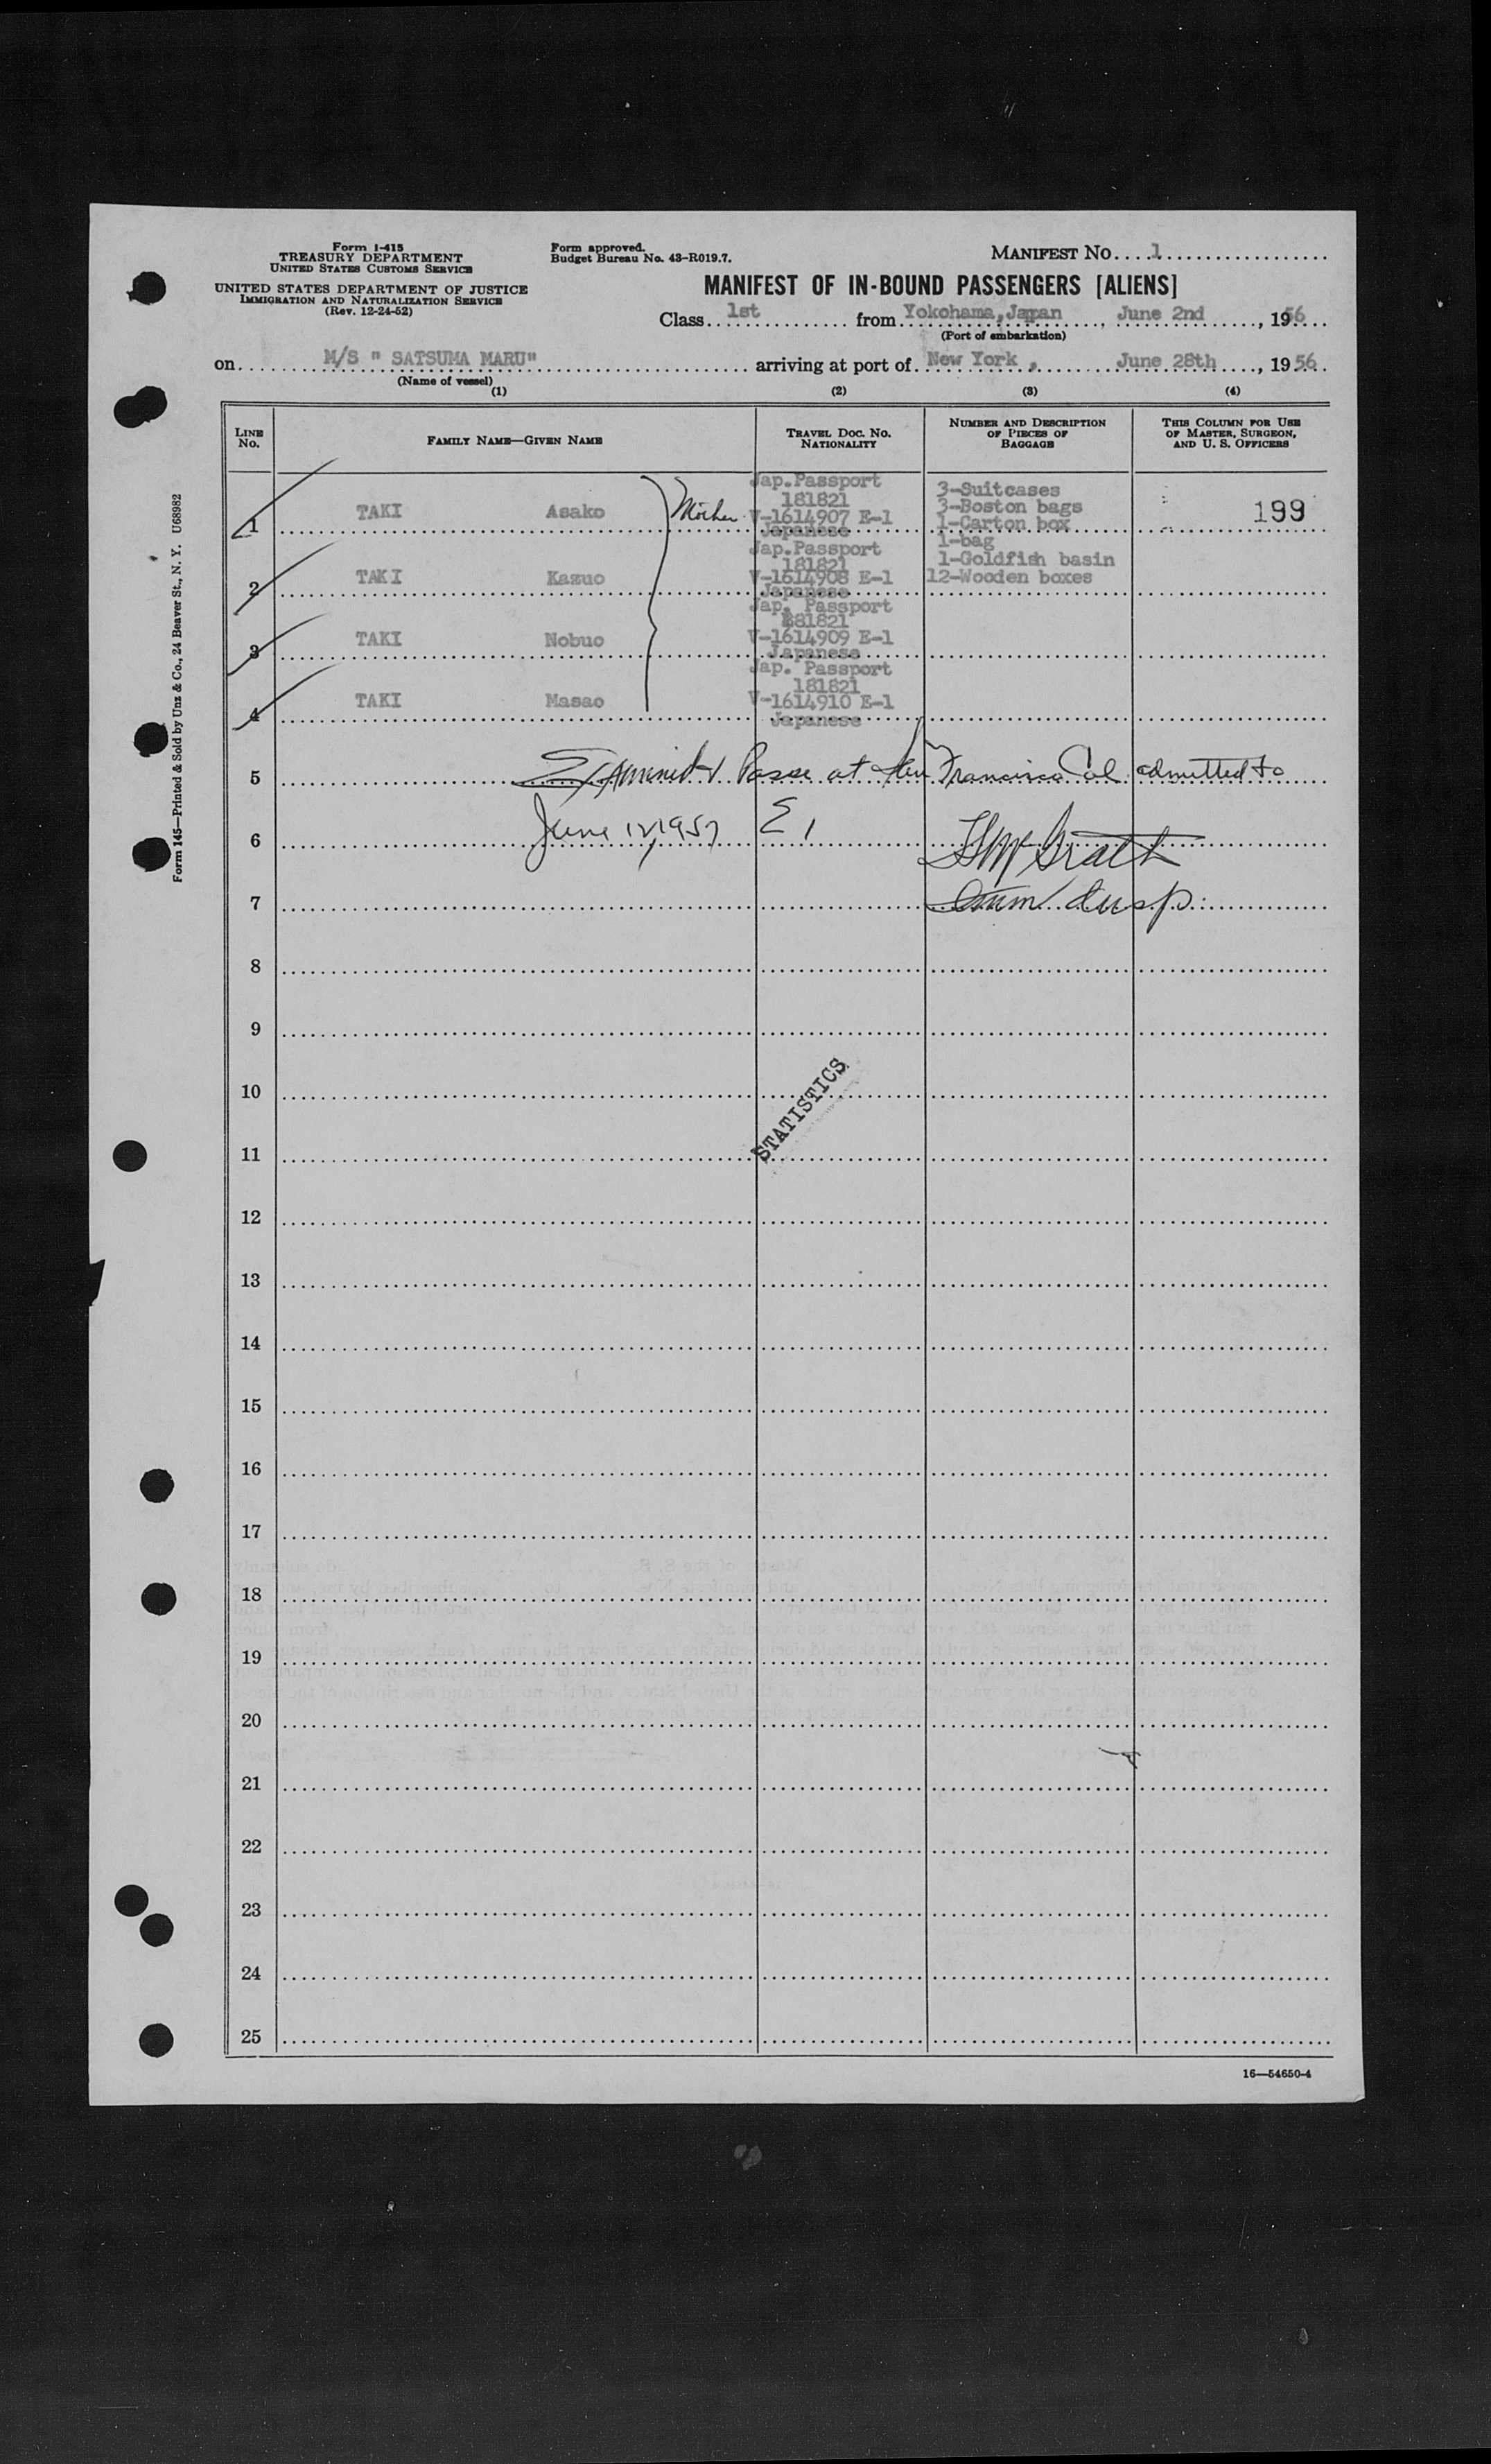 Form I-415
TREASURY DEPARTMENT
UNITED STATES CUSTOMS SERVICE
UNITED STATES DEPARTMENT OF JUSTICE
IMMIGRATION AND NATURALIZATION SERVICE
(Rev. 12-24-52)
Form approved.
Budget Bureau No. 43-R019.7.
MANIFEST No. 1
MANIFEST OF IN-BOUND PASSENGERS [ALIENS]
Class 1st from Yokohama, Japan, June 2nd, 1956
(Port of embarkation)
on M/S " SATSUMA MARU" arriving at port of New York, June 28th, 1956
(Name of vessel)
(1) (2) (3) (4)
LINE No. FAMILY NAME—GIVEN NAME TRAVEL DOC. No. NATIONALITY NUMBER AND DESCRIPTION OF PIECES OF BAGGAGE THIS COLUMN FOR USE OF MASTER, SURGEON, AND U. S. OFFICERS
1 TAKI Asako Mother Jap.Passport 181821 V-1614907 E-1 Japanese 199
3-Suitcases
3-Boston bags
1-Carton box
1-bag
1-Goldfish basin
12-Wooden boxes
2 TAKI Kazuo Jap.Passport 181821 V-1614908 E-1 Japanese
3 TAKI Nobuo Jap. Passport 181821 V-1614909 E-1 Japanese
4 TAKI Masao Jap. Passport 181821 V-1614910 E-1 Japanese
5 Examined & Passe at San Francisco Cal admitted to
6 June 12, 1957 E 1
7
8
9
10
STATISTICS
11
12
13
14
15
16
17
18
19
20
21
22
23
24
25
16—54650-4
Form 145—Printed & Sold by Unz & Co., 24 Beaver St., N. Y. U68982